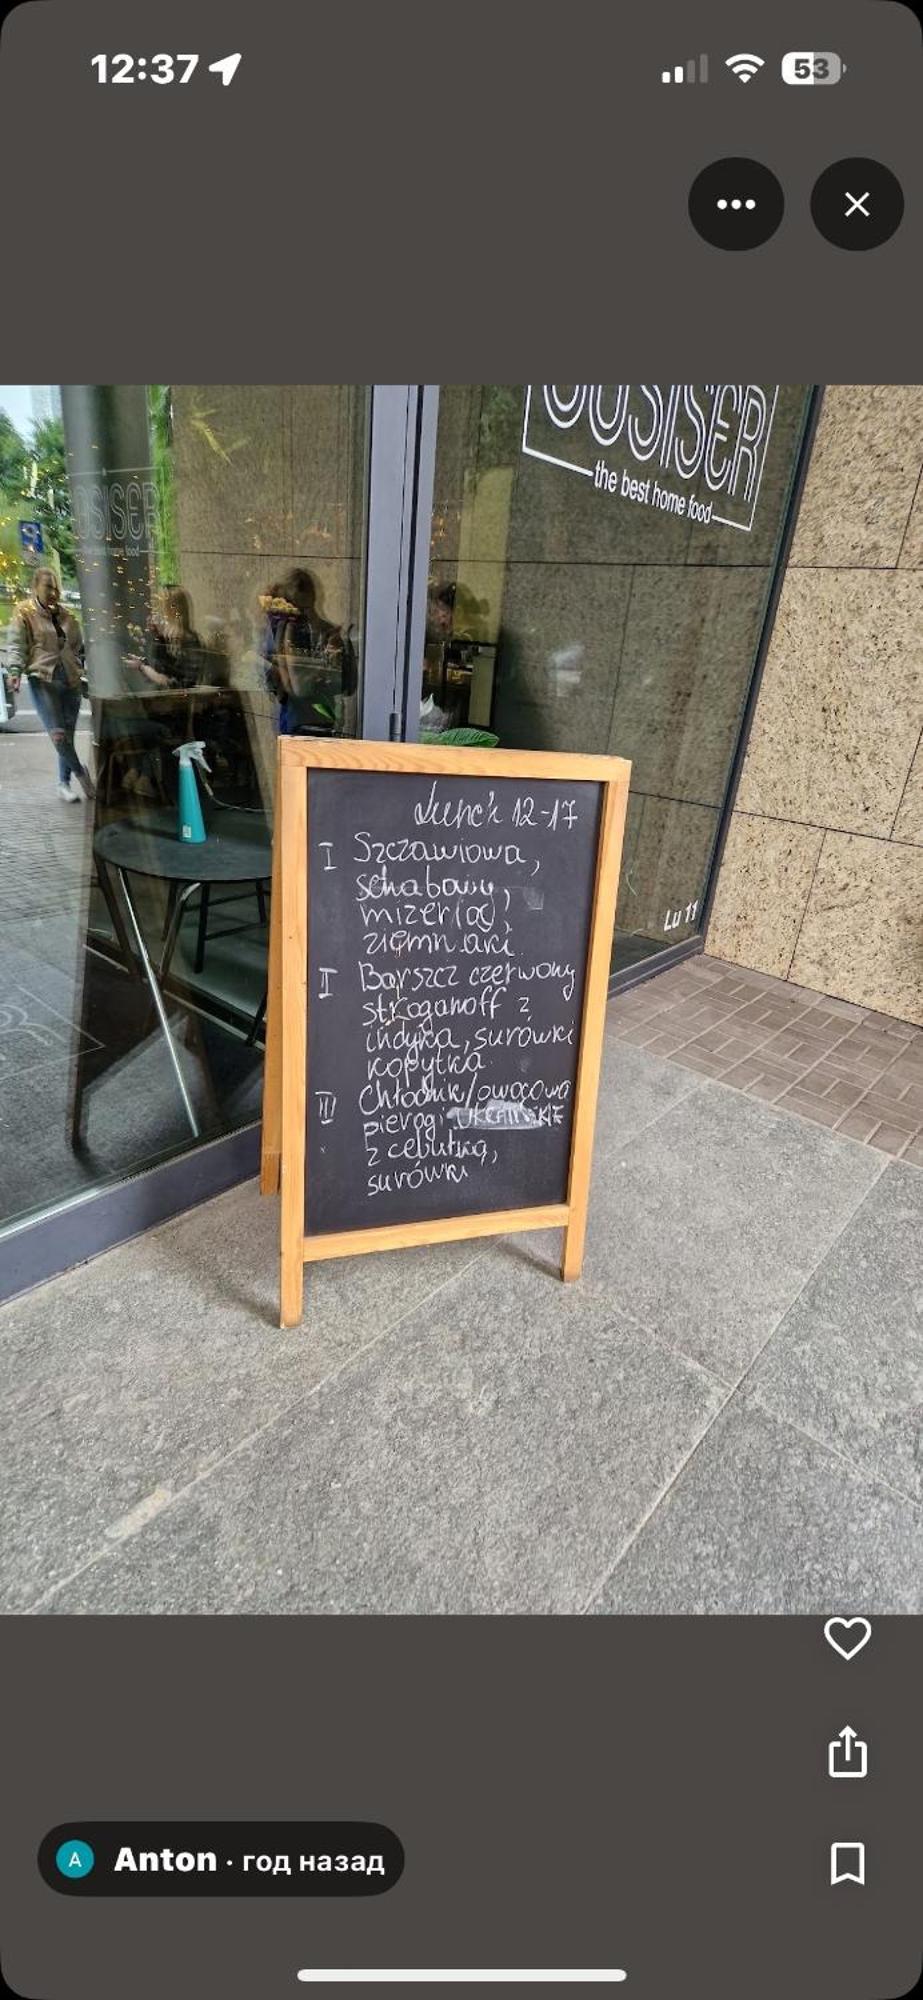 12:37
53
the best home food
Lunch 12-17
I Szczawiowa,
schabowy,
mizeria,
ziemniaki
II Barszcz czerwony
stroganoff z
indyka, surówki
kopytka
III Chłodnik/owocowa
pierogi
z cebulką,
surówki
Lu 11
A Anton · год назад